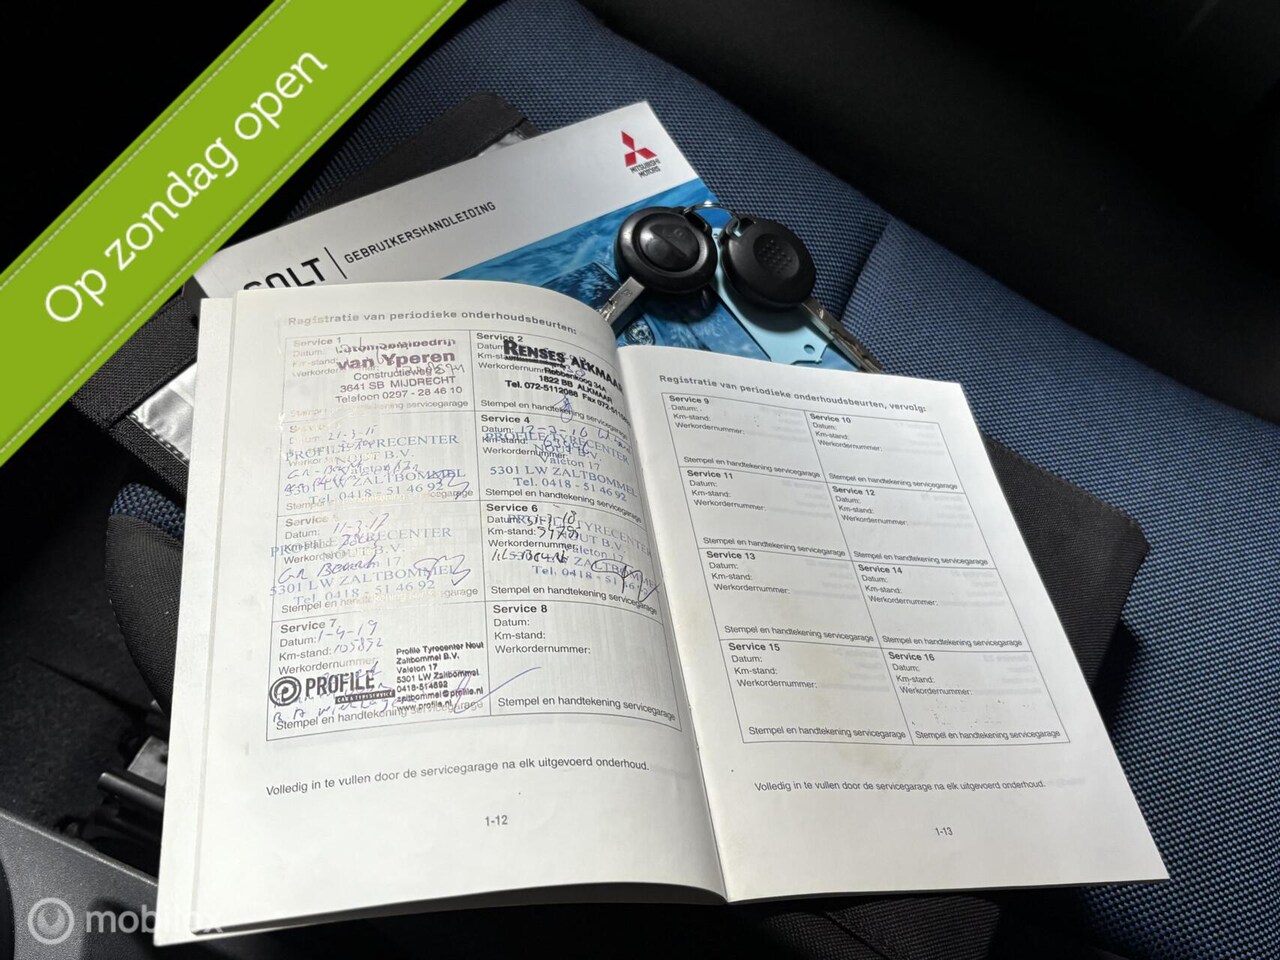 Op zondag open
MITSUBISHI
MOTORS
COLT | GEBRUIKERSHANDLEIDING
Registratie van periodieke onderhoudsbeurten:
Service 1
Datum:
Km-stand:
van Yperen
Constructieweg
3641 SB MIJDRECHT
Telefoon 0297 - 28 46 10
Stempel en handtekening servicegarage
Service 2
Datum:
Km-stand:
Werkordernummer:
RENSES ALKMAAR
Robbenkoog 34A
1822 BB ALKMAAR
Tel. 072-5112088 Fax 072-51
Stempel en handtekening
21-3-
PROFILE TYRECENTER
NOUT B.V.
5301 LW ZALTBOMMEL
Tel. 0418 - 51 46 92
Service 4
Datum:
Km-stand:
Werkordernummer:
PROFILE TYRECENTER
NOUT B.V.
Valeton 17
5301 LW ZALTBOMMEL
Tel. 0418 - 51 46 92
Stempel en handtekening servicegarage
Service
Datum: 11-3-17
TYRECENTER
NOUT B.V.
17
5301 LW ZALTBOMMEL
Tel. 0418 - 51 46 92
Stempel en handtekening servicegarage
Service 6
Datum:
Km-stand:
Werkordernummer:
PROFILE TYRECENTER
NOUT B.V.
Valeton 17
LW ZALTBOMMEL
Tel. 0418 - 51 46 92
Stempel en handtekening servicegarage
Service 7
Datum: 1-4-19
Km-stand: 105892
Werkordernummer
PROFILE
CAR & TYRESERVICE
Profile Tyrecenter Nout
Zaltbommel B.V.
Valeton 17
5301 LW Zaltbommel
0418-514692
zaltbommel@profile.nl
www.profile.nl
Stempel en handtekening servicegarage
Service 8
Datum:
Km-stand:
Werkordernummer:
Stempel en handtekening servicegarage
Volledig in te vullen door de servicegarage na elk uitgevoerd onderhoud.
1-12
Registratie van periodieke onderhoudsbeurten, vervolg:
Service 9
Datum:
Km-stand:
Werkordernummer:
Stempel en handtekening servicegarage
Service 10
Datum:
Km-stand:
Werkordernummer:
Stempel en handtekening servicegarage
Service 11
Datum:
Km-stand:
Werkordernummer:
Stempel en handtekening servicegarage
Service 12
Datum:
Km-stand:
Werkordernummer:
Stempel en handtekening servicegarage
Service 13
Datum:
Km-stand:
Werkordernummer:
Stempel en handtekening servicegarage
Service 14
Datum:
Km-stand:
Werkordernummer:
Stempel en handtekening servicegarage
Service 15
Datum:
Km-stand:
Werkordernummer:
Stempel en handtekening servicegarage
Service 16
Datum:
Km-stand:
Werkordernummer:
Stempel en handtekening servicegarage
Volledig in te vullen door de servicegarage na elk uitgevoerd onderhoud.
1-13
mobilox